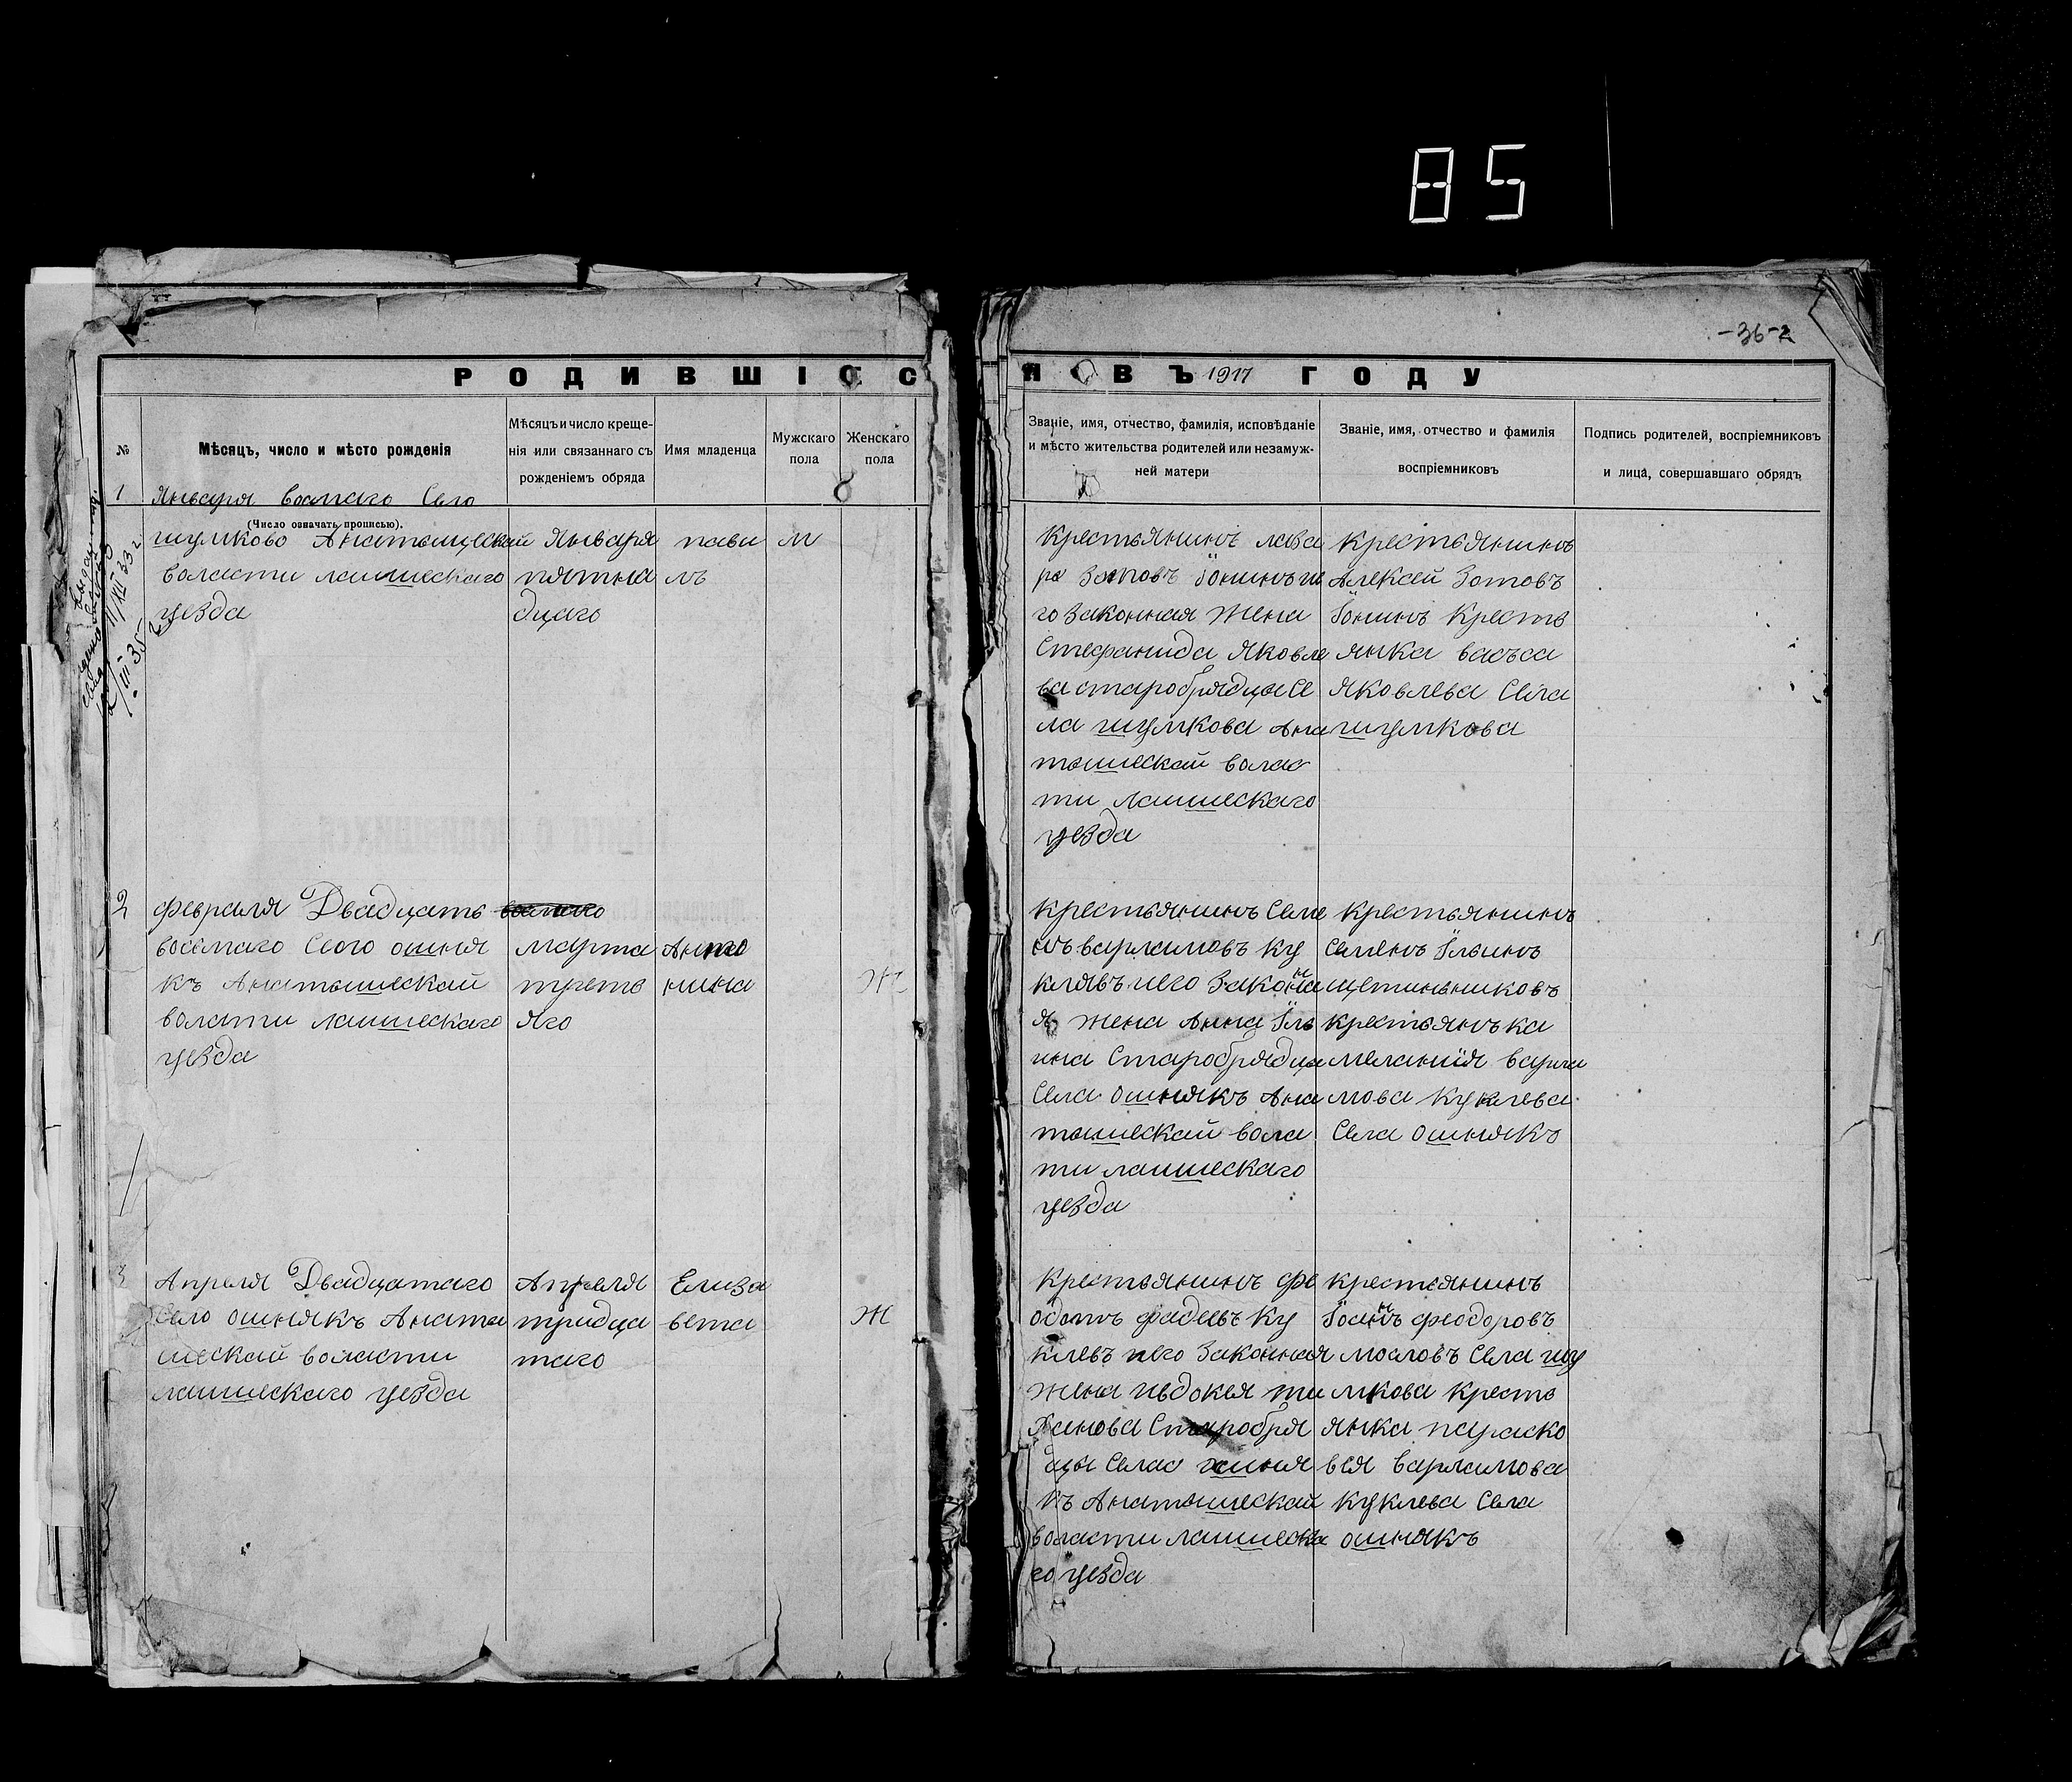 85
-36-
РОДИВШІЕСЯ ВЪ 1917 ГОДУ
№
Мѣсяцъ, число и мѣсто рожденія
Мѣсяцъ и число креще-
нія или связаннаго съ
рожденіемъ обряда
Имя младенца
Мужскаго
пола
Женскаго
пола
Званіе, имя, отчество, фамилія, исповѣданіе
и мѣсто жительства родителей или незамуж-
ней матери
Званіе, имя, отчество и фамилія
воспріемниковъ
Подпись родителей, воспріемниковъ
и лица, совершавшаго обрядъ
(Число означать прописью).
1
Января восмаго Село
шумково Анатышескай
воласти лаишескаго
уезда
Января
пятна
дцаго
пави
лъ
м
Крестьянинъ лаза
ро Зотовъ Іонинъ и
го Законная Жена
Стефанида Яковле
ва старобрядцы Се
ла шумкова Ана
тышескай волас
ти лаишескаго
уезда
Крестьянинъ
Алексей Зотовъ
Іонинъ Кресть
янка васъса
Яковлева Села
шумкова
2
февраля Двадцать
восемаго Сего ошня
къ Анатышескай
воласти лаишескаго
уезда
марта
треть
яго
Анто
нина
Ж
Крестьянинъ Семе
нъ варламовъ Ку
клявъ иего Законна
я жена Анна Іль
ина Старобрядцы
Села ошнякъ Ана
тышескай вола
ти лаишескаго
уезда
Крестьянинъ
Семенъ Ільинъ
щетинъниковъ
крестьянъка
меланиія варла
мова Куклева
Села ошнякъ
3
Апреля Двадцатаго
Село ошнякъ Аната
шескай воласти
лаишескаго уезда
Апреля
тридца
таго
Елиза
вета
Ж
Крестьянинъ фе
одотъ фадеевъ Ку
клевъ иего Законная
Жена иевдокея ти
ханова Старобря
дцы Села ошня
къ Анатышескай
воласти лаишеска
го уезда
крестьянинъ
Іоанъ феодоровъ
масловъ Села шу
мкова кресть
янка параско
вея варламова
Куклева Села
ошнякъ